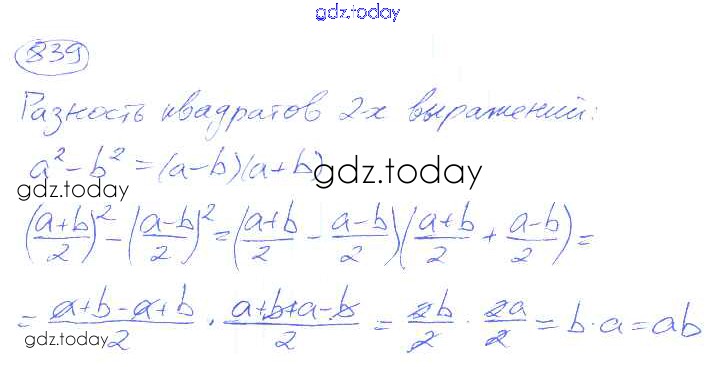 gdz.today
839
Разность квадратов 2х выражений:
a² - b² = (a-b)(a+b)
gdz.today
gdz.today
((a+b)/2)² - ((a-b)/2)² = ((a+b)/2 - (a-b)/2)((a+b)/2 + (a-b)/2) =
= (a+b-a+b)/2 · (a+b+a-b)/2 = 2b/2 · 2a/2 = b·a = ab
gdz.today